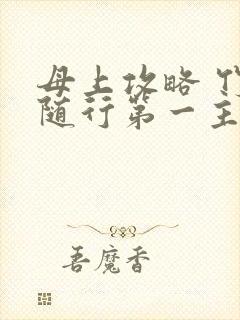 母上攻略
随行第一主
吾魔香